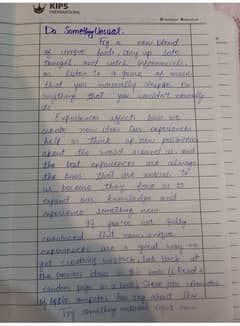 KIPS
PREPARATIONS
Do Something Unusual.
Try a new blend
of unique foods, stay up late
tonight and watch infomercials,
or listen to a genre of music
that you normally despise. Do
anything that you wouldn't normally
do
Experiences affect how we
create new ideas. Our experiences
help us think up new possibilities
about the world around us and
the best experiences are always
the ones that are unusual to
us because they force us to
expand our knowledge and
experience something new.
If you're not fully
convinced that new, unique
experiences are a good way to
get creating unstuck, look back at
the previous ideas in this (Read a
random page in a book) Steve Jobs, founder
of Apple computer has say about this
Try something unusual right now.